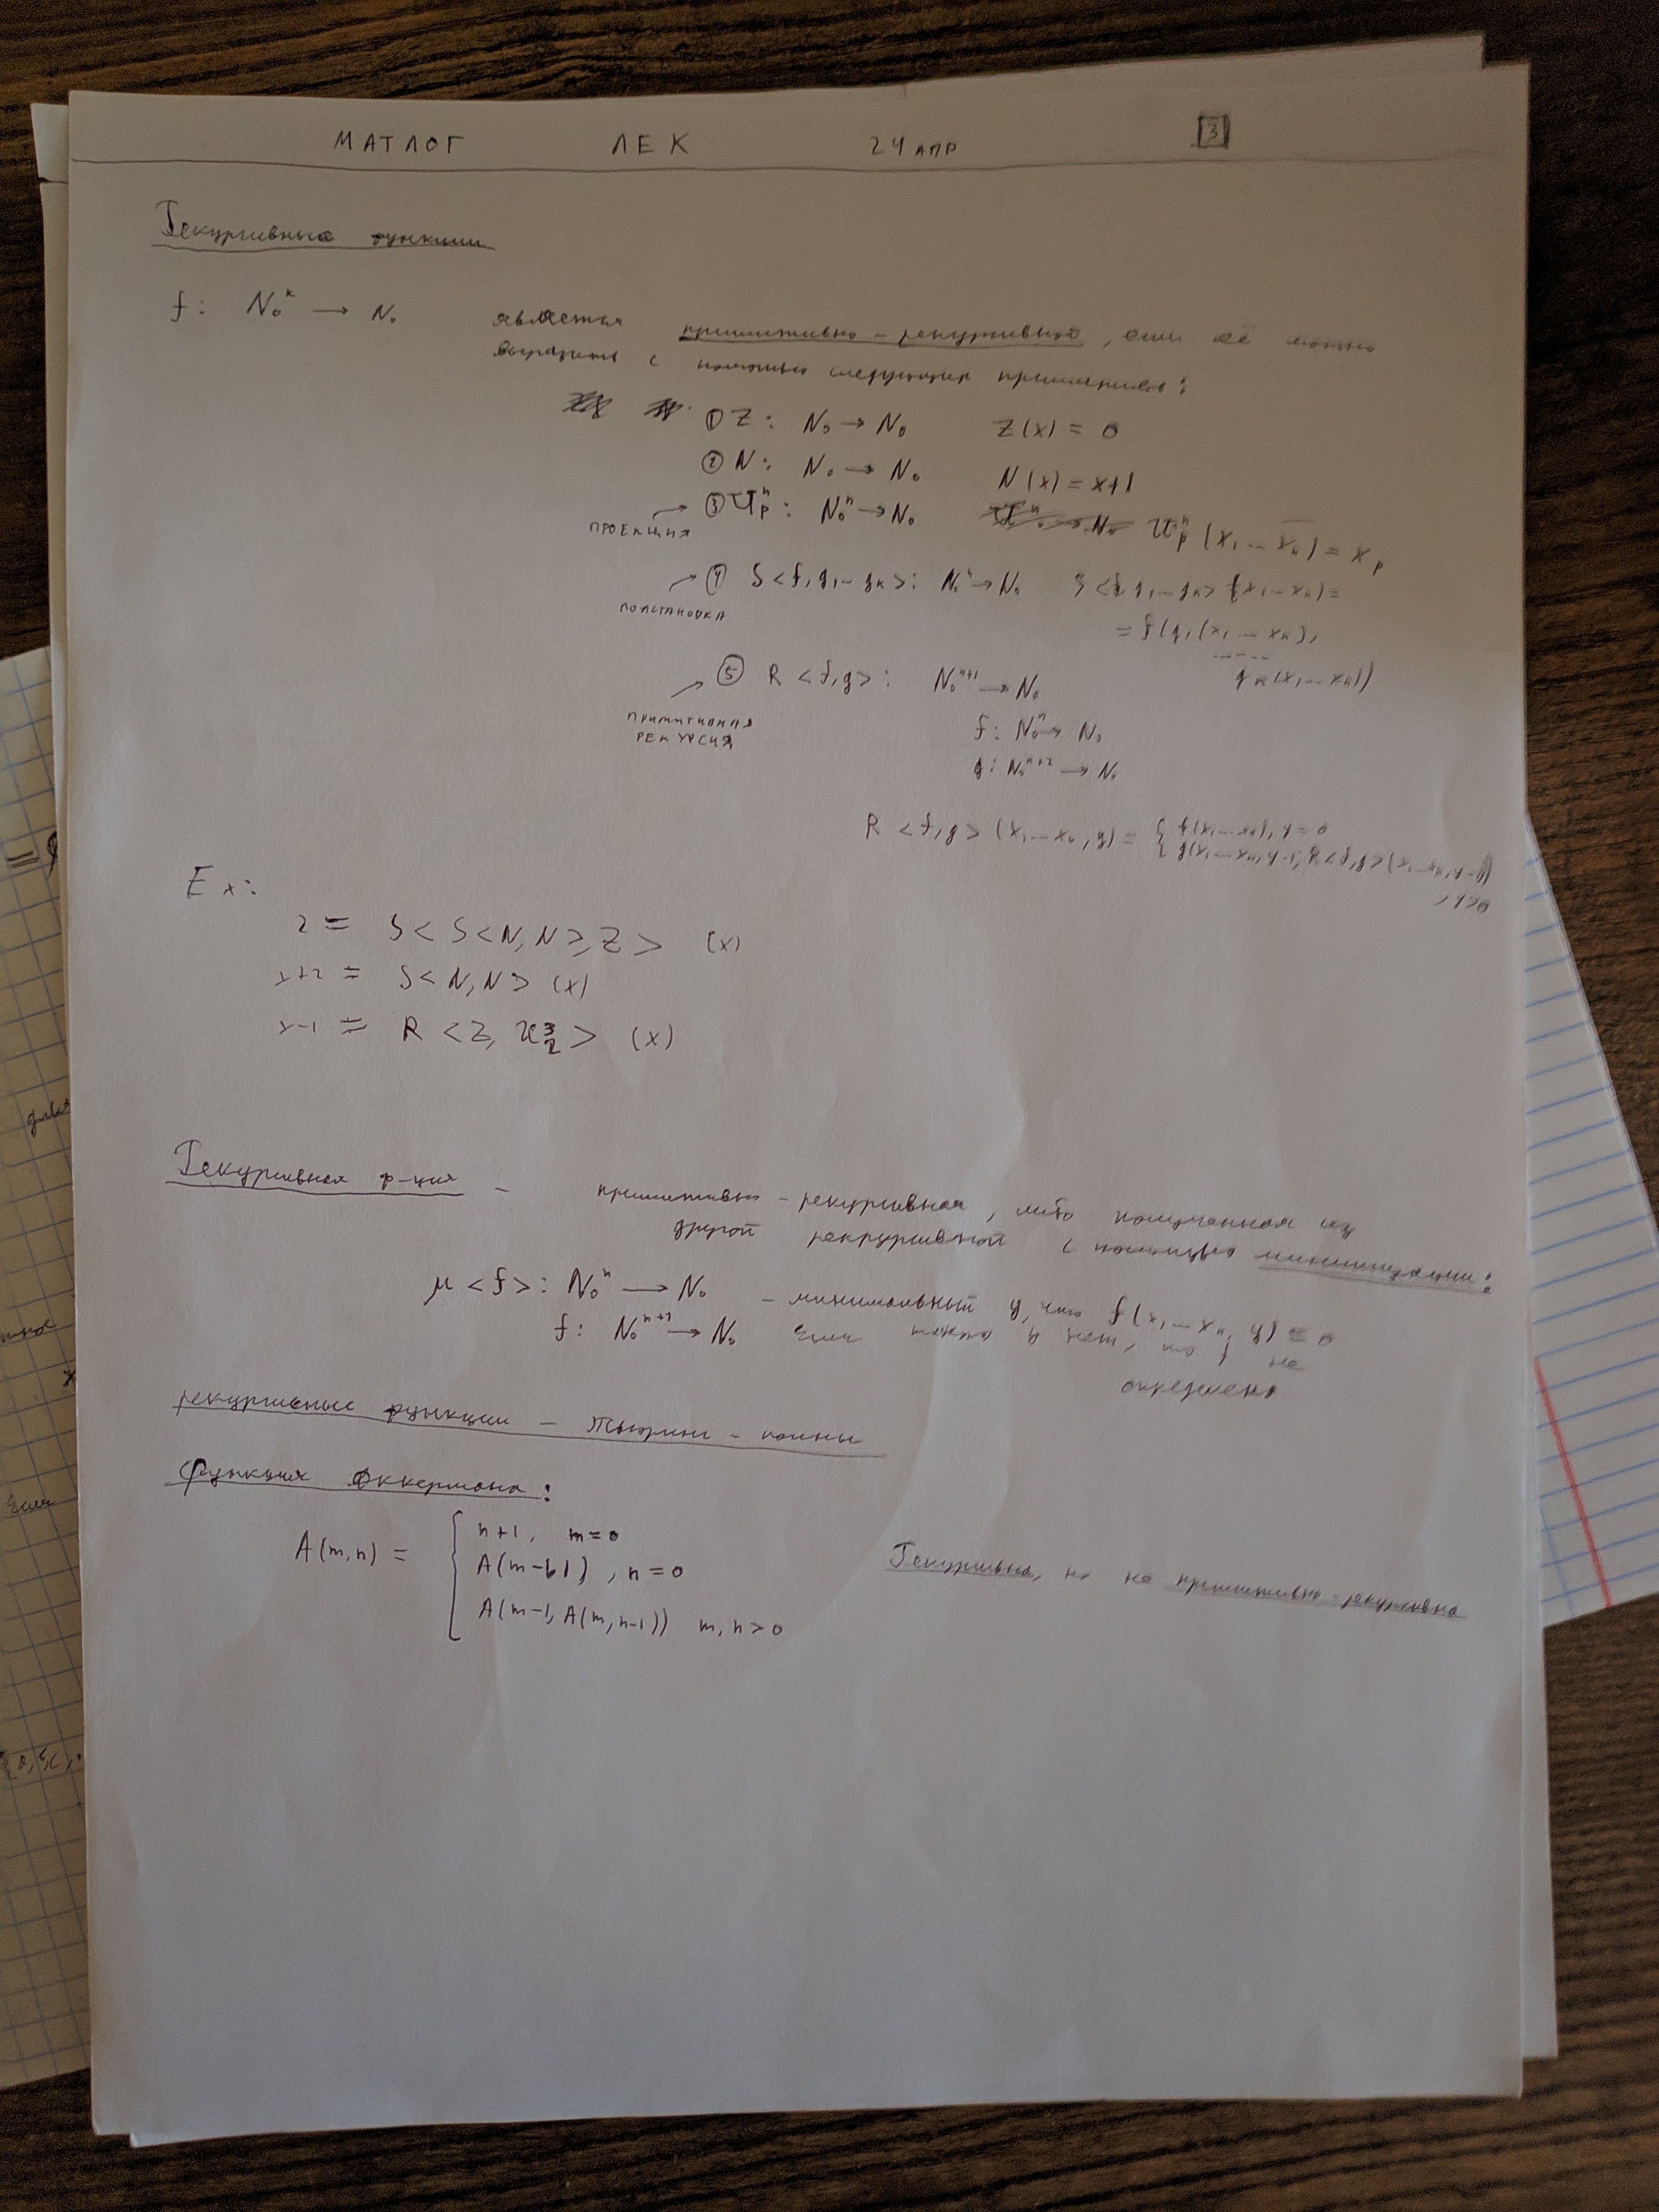 МАТЛОГ ЛЕК 24 АПР 3
Рекурсивные функции
f: N₀ᵏ → N₀ является примитивно-рекурсивной, если её можно
выразить с помощью следующих примитивов:
① Z: N₀ → N₀ Z(x) = 0
② N: N₀ → N₀ N(x) = x+1
ПРОЕКЦИЯ → ③ Uₚⁿ: N₀ⁿ → N₀ Uₚⁿ(x₁ ... xₙ) = xₚ
ПОДСТАНОВКА → ④ S<f, g₁ ... gₖ>: N₀ⁿ → N₀ S<f, g₁ ... gₖ>(x₁ ... xₙ) =
= f(g₁(x₁ ... xₙ),
.....
gₖ(x₁ ... xₙ))
ПРИМИТИВНАЯ РЕКУРСИЯ → ⑤ R<f,g>: N₀ⁿ⁺¹ → N₀
f: N₀ⁿ → N₀
g: N₀ⁿ⁺² → N₀
R<f,g>(x₁ ... xₙ, y) = { f(x₁ ... xₙ), y=0
g(x₁ ... xₙ, y-1, R<f,g>(x₁ ... xₙ, y-1))
, y>0
Ex:
2 = S<S<N,N>,Z> (x)
x+2 = S<N,N> (x)
x-1 = R<Z, U₂³> (x)
Рекурсивная ф-ция - примитивно-рекурсивная, либо полученная из
другой рекрурсивной с помощью минимизации:
μ<f>: N₀ⁿ → N₀ - минимальный y, что f(x₁ ... xₙ, y) = 0
f: N₀ⁿ⁺¹ → N₀ Если такого y нет, то f не
определена
рекурсивные функции - тьюринг-полны
Функция Аккермана:
A(m,n) = { n+1, m=0
A(m-1,1), n=0
A(m-1, A(m,n-1)) m,n>0
Рекурсивна, но не примитивно-рекурсивна